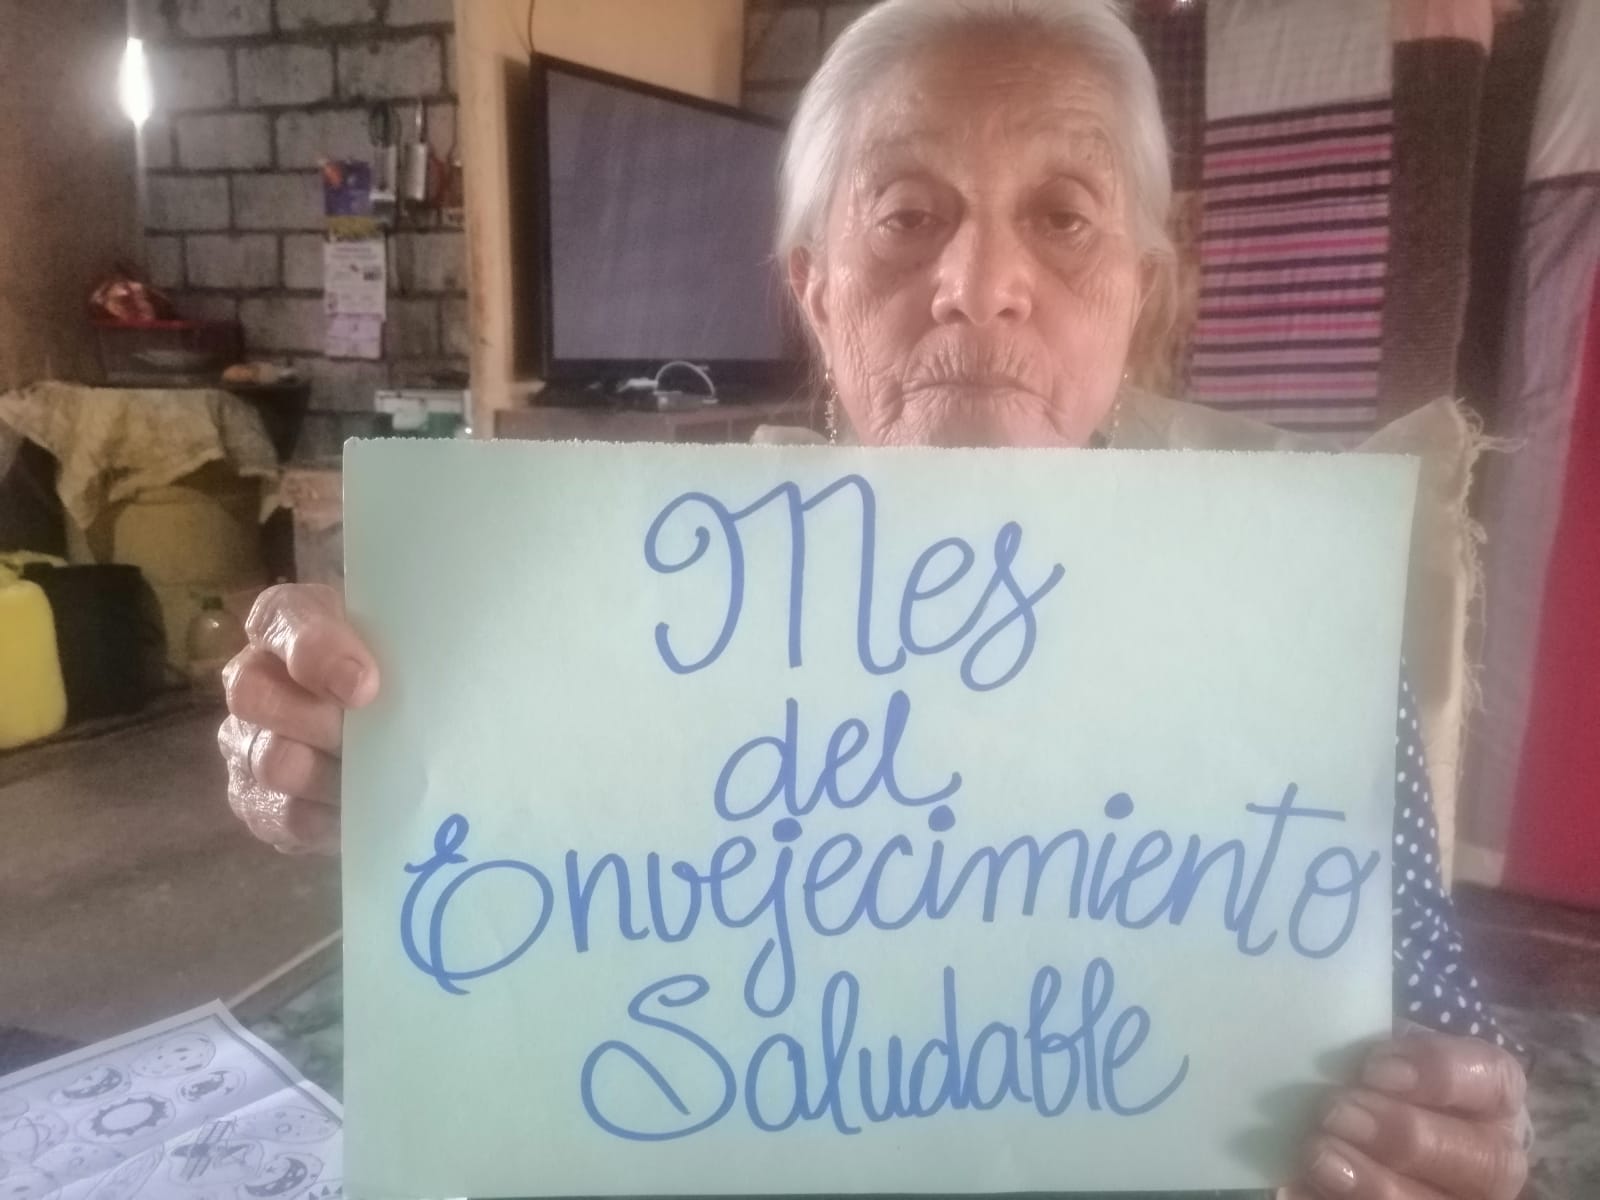 Mes
del
Envejecimiento
Saludable